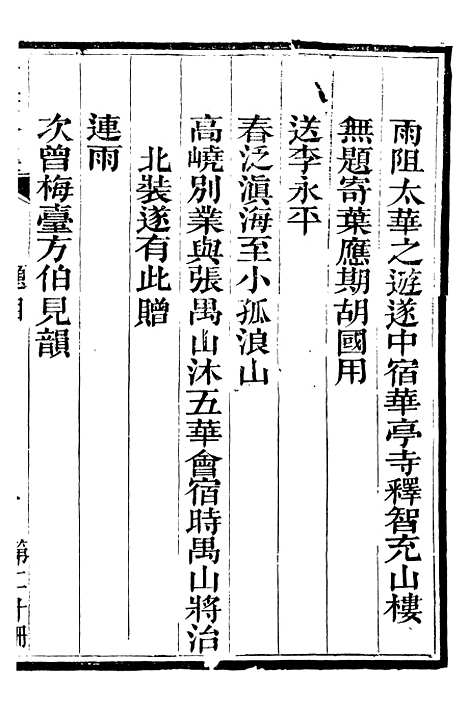 雨阻太華之遊遂中宿華亭寺釋智充山樓
無題寄葉應期胡國用
送李永平
春泛滇海至小孤浪山
高嶢別業與張禺山沐五華會宿時禺山將治
北裝遂有此贈
連雨
次曾梅臺方伯見韻
題目
第二十冊